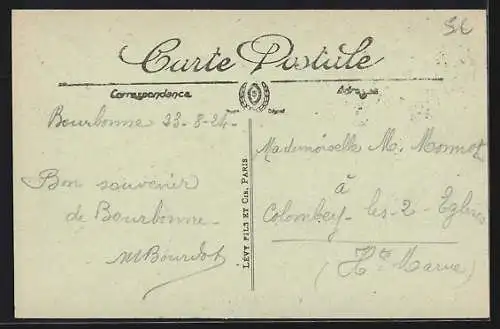 SL
Carte Postale
Correspondance
Adresse
Bourbonne 23-8-24-
Bon souvenir
de Bourbonne-
MBourdot
LÉVY FILS ET CIE, PARIS
Mademoiselle M. Monnot
à
Colombey-les-2-Eglises
(Hte Marne)